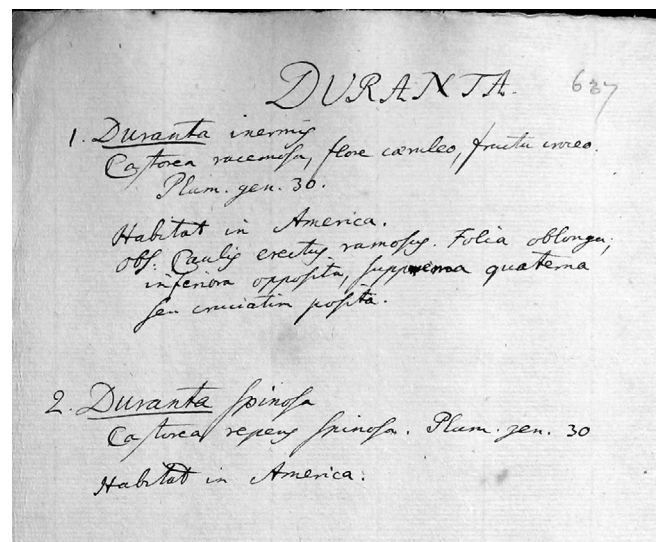 DURANTA. 637
1. Duranta inermis
Castorea racemosa, flore cæruleo, fructu croceo.
Plum. gen. 30.
Habitat in America.
Obs. Caulis erectus ramosus. Folia oblonga;
inferiora opposita, suprema quaterna
seu cruciatim posita.
2. Duranta spinosa
Castorea repens spinosa. Plum. gen. 30
Habitat in America.